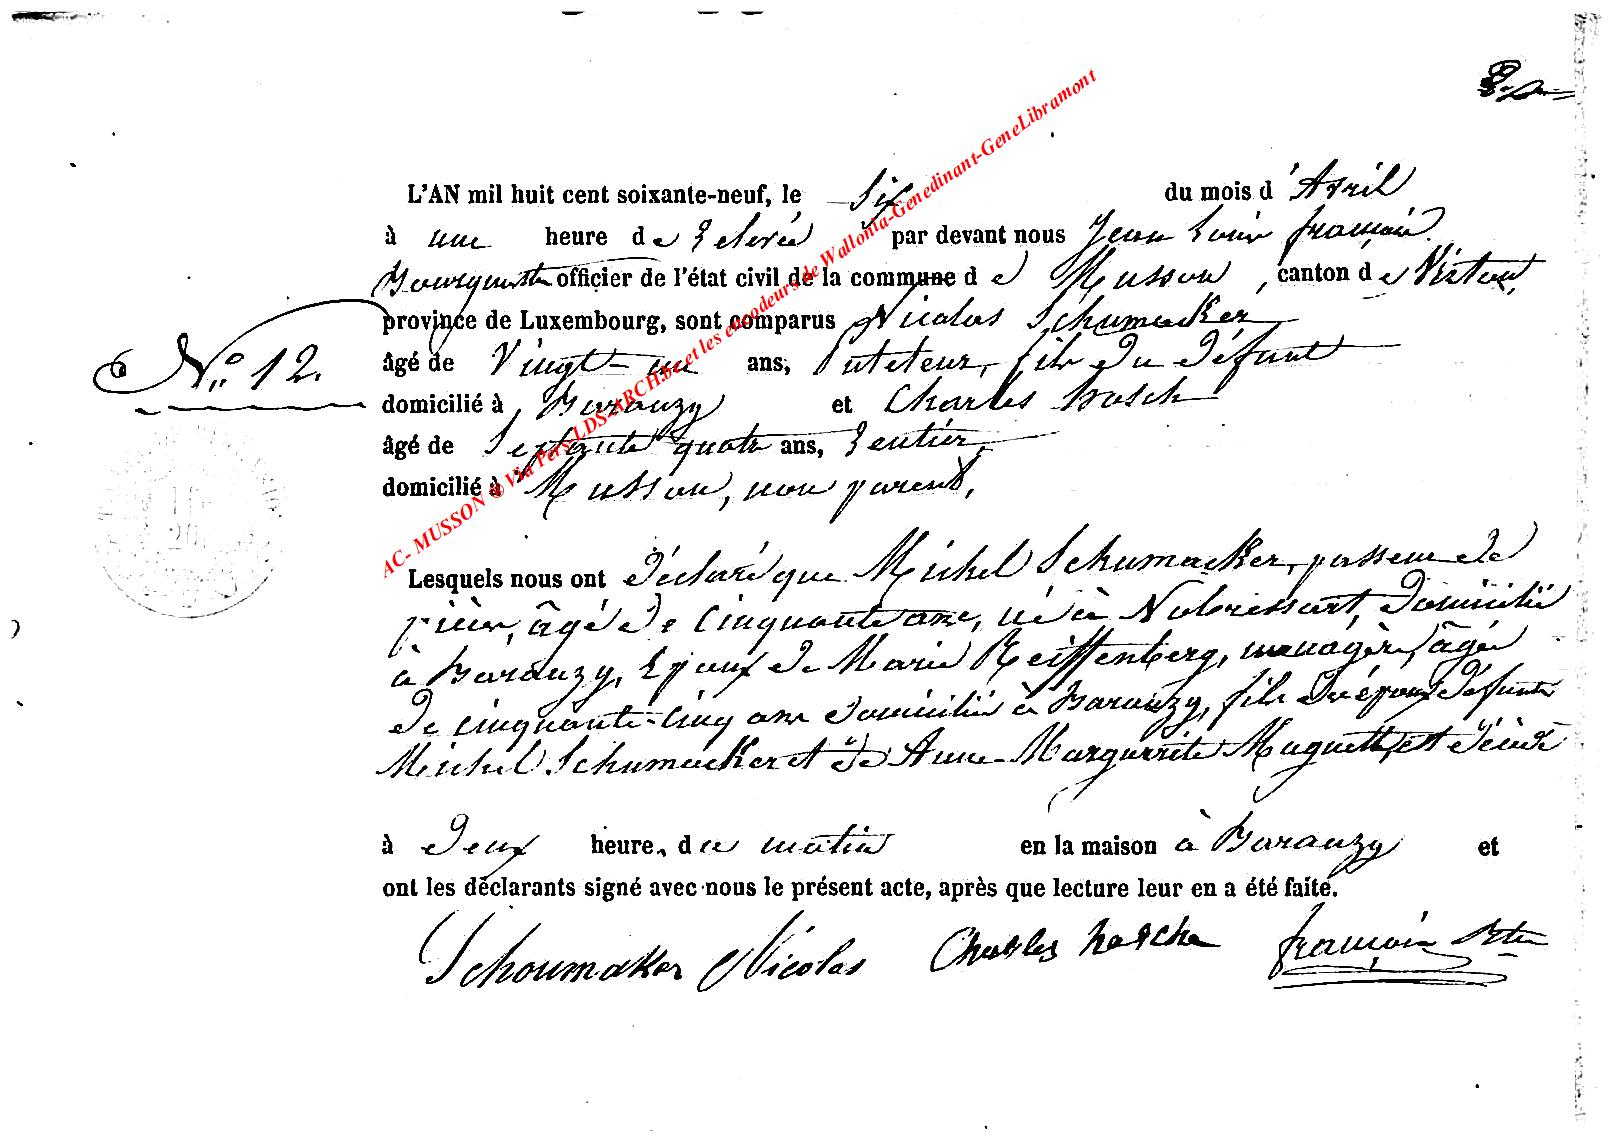 L'AN mil huit cent soixante-neuf, le Six du mois d'Avril
à une heure de relevée par devant nous Jean Louis françois
officier de l'état civil de la commune de Musson, canton de Virton,
province de Luxembourg, sont comparus Nicolas Schumacker
N° 12.
âgé de Vingt-un ans, fils du défunt
domicilié à Baranzy et Charles hosch
âgé de Septante quatre ans, Rentier,
domicilié à Musson, non parent,
AC- MUSSON @ Via Pers-LDS-ARCH.be et les encodeurs de Wallonia-Genedinant-GeneLibramont
Lesquels nous ont déclaré que Michel Schumacker, de
âgé de Cinquante ans, né à Nobressart, domicilié
à Baranzy, Epoux de Marie Reiffenberg, menagère, âgée
de cinquante-cinq ans domiciliée à Baranzy, fils des époux défunts
Michel Schumacker et de Anne-Marguerite Muguette, est décédé
à deux heures du matin en la maison à Baranzy et
ont les déclarants signé avec nous le présent acte, après que lecture leur en a été faite.
Schoumaker Nicolas Charles hosche françois